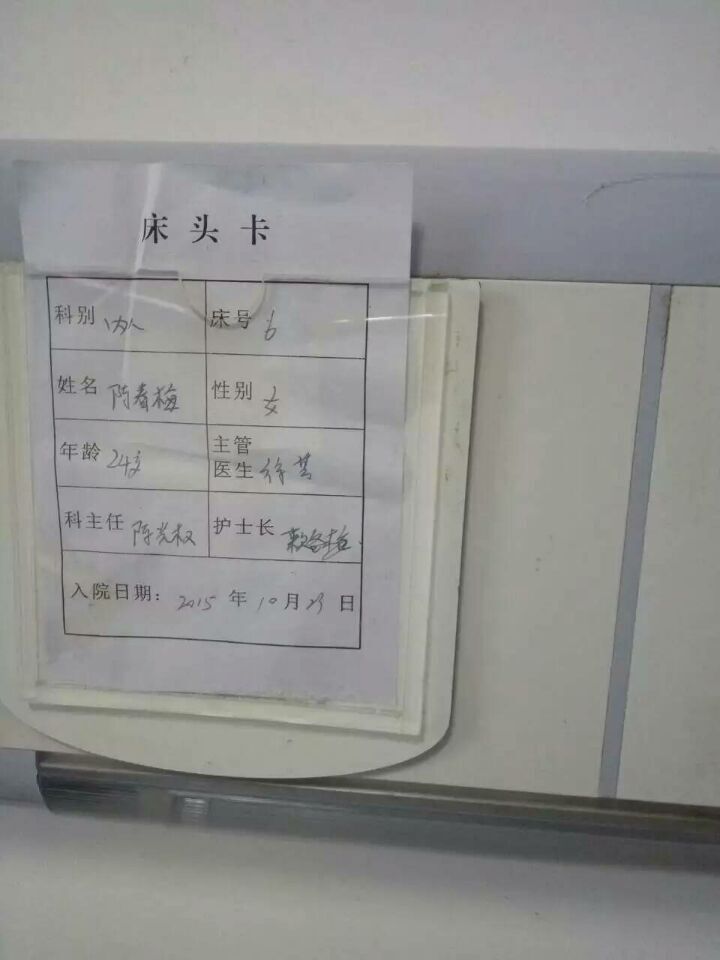 床头卡
科别 床号 6
姓名 陈春梅 性别 女
年龄 24岁 主管
医生 徐芸
科主任 陈光权 护士长
入院日期: 2015 年 10 月 23 日